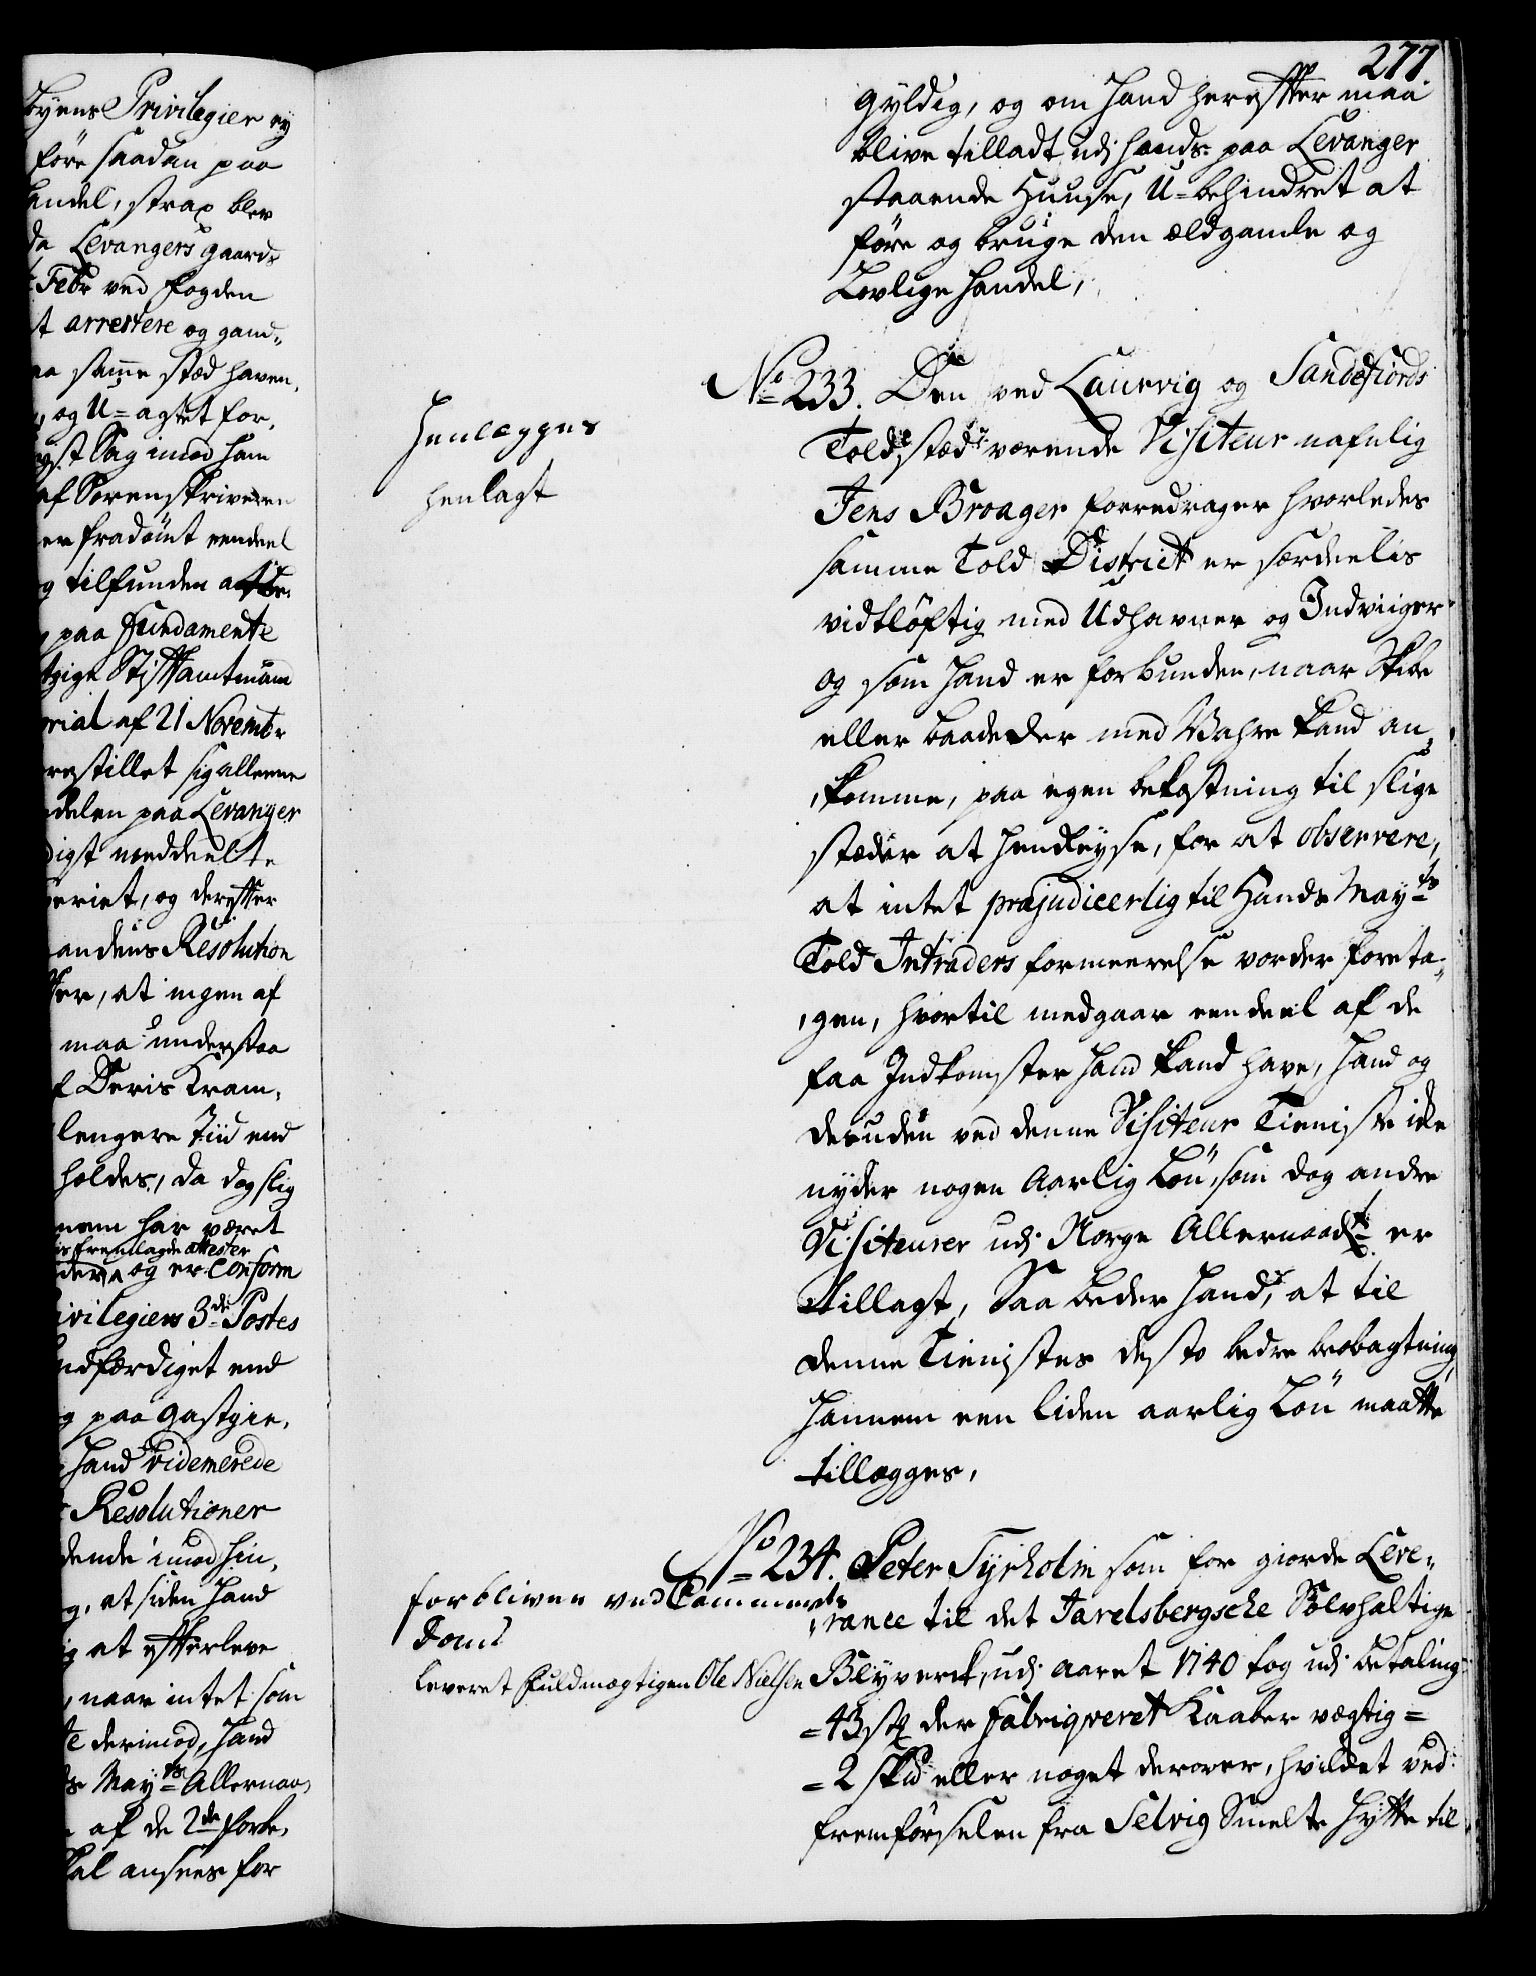 Byens Privilegier ey
före saadan paa
handel, strax blev
da Levangers gaards
Febr ved fogden
arrestere og gand„
samme stæd haven„
og U=agtet for„
Sag imod ham
af Sorenskriveren
fradömt eendeel
tilfunden at
paa fundamente
Stiftamtmand
af 21 Novembr
restillet sig alleene
paa Levanger
meddeelte
og derefter
Resolution
at ingen af
maa understaa
Deris Kram„
lengere Tiid end
holdes, da dog slig
har været
fremlagde attester
og er Conform
3de Postes
end
paa gastgie„
Hand Videmerede
Resolutioner
imod hin„
at siden Hand
at efterleve
naar intet som
derimod, Hand
Mayts Allernaa„
af de 2de forbe„
ansees for
277.
gyldig, og om Hand herefter maa
blive tilladt udj hands paa Levanger
staaende Huuse, U=behindret at
före og bruge den ældgamle og
Lovlige Handel,
Henlegges
henlagt
No 233. Den ved Laurvig og Sandefiords
Toldstæd værende Visiteur nafnlig
Jens Broager forredrager hvorledes
samme Told District er særdeelis
vidtlöftig med Udhavner og Indviiger
og som Hand er forbunden, naar Skibe
eller baade der med Wahre kand an„
„komme, paa egen bekostning til slige
stæder at Hendreyse, for at observere,
at intet præjudiceerlig til Hands Mayts
Told Intraders formeerelse vorder foreta„
„gen, hvortil medgaar eendeel af de
faa Indkomster Hand kand have, Hand og
desuden ved denne Visiteur Tieniste icke
nyder nogen Aarlig Lön, som dog andre
Visiteurer udj Norge Allernaadt er
tillagt, Saa beder Hand, at til
denne Tienistes desto bedre beobagtning,
Hannem een liden aarlig Lön maatte
tillægges,
forbliver ved Cammerets
Dom
leveret fuldmægtigen Ole Nielsen
No 234. Peter Tyrholm som for giorde Leve„
„rance til det Jarelsbergsche Sölvhaltige
Blyverck, udj Aaret 1740 fog udj betaling
=43 stk der fabriqveret Kaaber vægtig=
=2 skd eller noget derover, hvilcket ved
fremförselen fra Selvig Smelte Hytte til